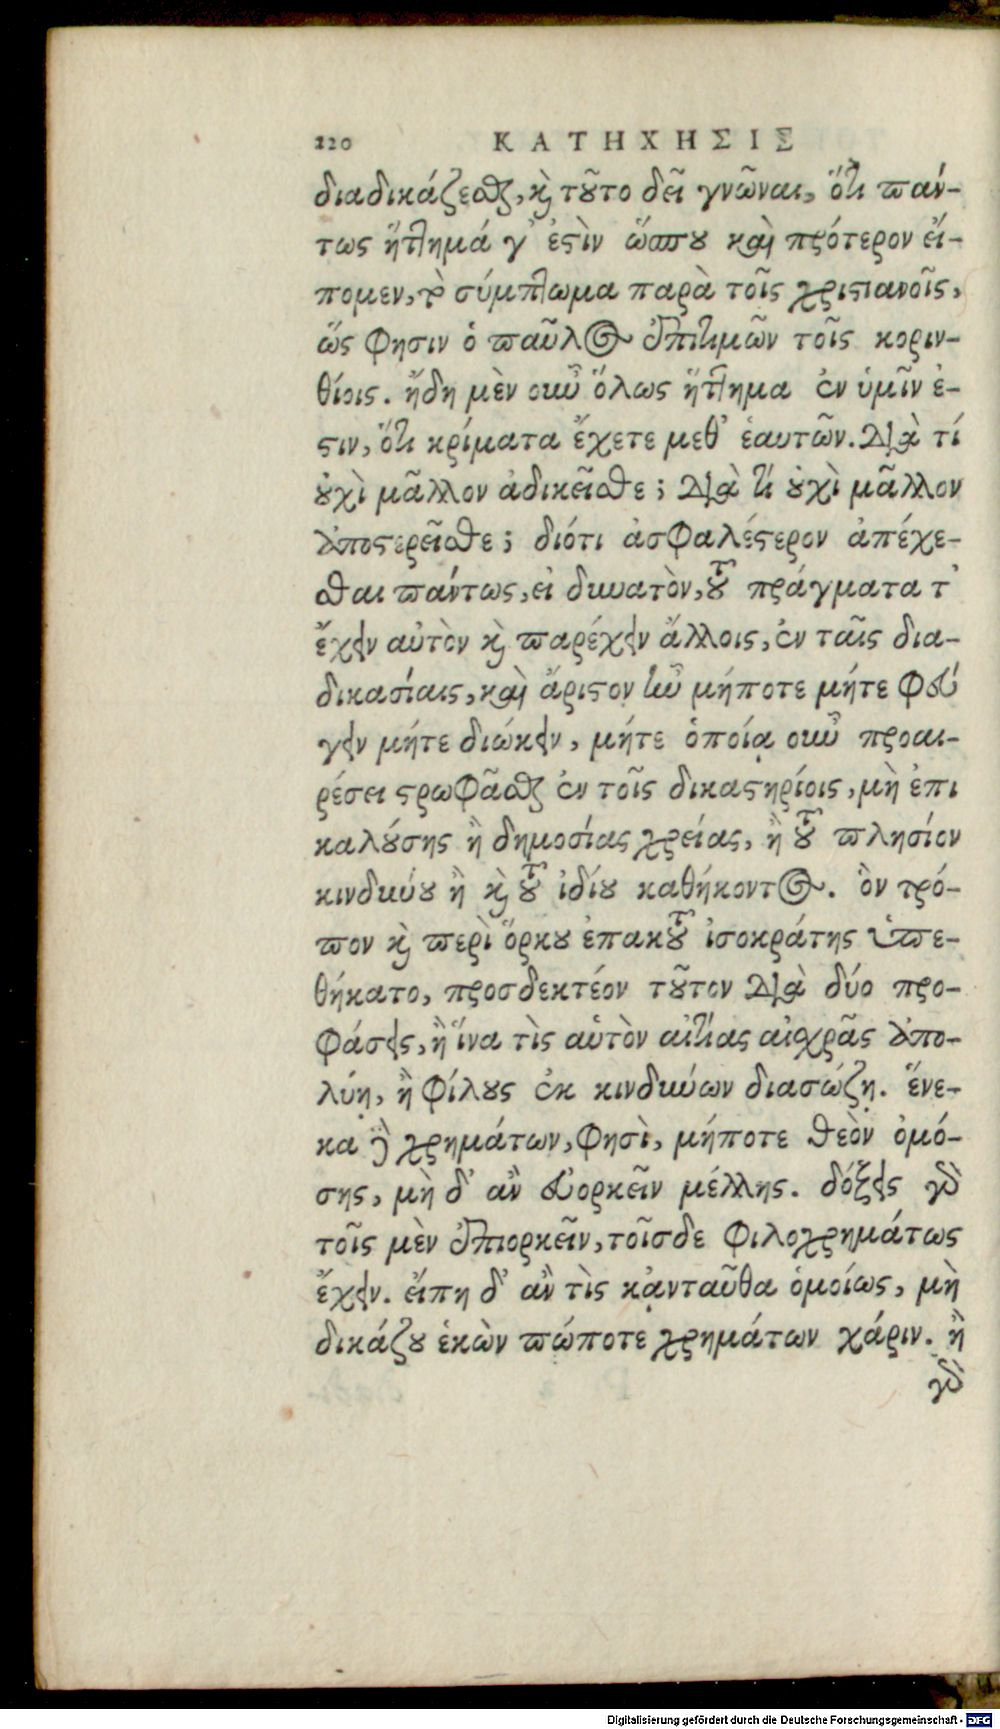 220 ΚΑΤΗΧΗΣΙΣ
διαδικάζεσθαι, καὶ τοῦτο δεῖ γνῶναι, ὅτι πάν-
τως ἥττημά γ' ἐστὶν ὥσπου καὶ πρότερον εἴ-
πομεν, τὸ σύμπτωμα παρὰ τοῖς χριστιανοῖς,
ὥς φησιν ὁ παῦλος ἐπιτιμῶν τοῖς κοριν-
θίοις. ἤδη μὲν οὖν ὅλως ἥττημα ἐν ὑμῖν ἐ-
στιν, ὅτι κρίματα ἔχετε μεθ' ἑαυτῶν. διὰ τί
οὐχὶ μᾶλλον ἀδικεῖσθε; διὰ τί οὐχὶ μᾶλλον
ἀποστερεῖσθε; διότι ἀσφαλέστερον ἀπέχε-
σθαι πάντως, εἰ δυνατὸν, τοῦ πράγματα τ'
ἔχειν αὐτὸν καὶ παρέχειν ἄλλοις, ἐν ταῖς δια-
δικασίαις, καὶ ἄριστον ἦν μήποτε μήτε φεύ
γειν μήτε διώκειν, μήτε ὁποίᾳ οὖν προαι-
ρέσει στρωφᾶσθαι ἐν τοῖς δικαστηρίοις, μὴ ἐπι
καλούσης ἢ δημοσίας χρείας, ἢ τοῦ πλησίον
κινδύνου ἢ καὶ τοῦ ἰδίου καθήκοντος. ὃν τρό-
πον καὶ περὶ ὅρκου ἐπακτοῦ ἰσοκράτης ὑπε-
θήκατο, προσδεκτέον τοῦτον διὰ δύο προ-
φάσεις, ἢ ἵνα τὶς αὑτὸν αἰτίας αἰσχρᾶς ἀπο-
λύῃ, ἢ φίλους ἐκ κινδύνων διασώζῃ. ἕνε-
κα δὲ χρημάτων, φησὶ, μήποτε θεὸν ὀμό-
σῃς, μὴ δ' ἂν εὐορκεῖν μέλλῃς. δόξεις γὰρ
τοῖς μὲν ἐπιορκεῖν, τοῖσδε φιλοχρημάτως
ἔχειν. εἴπῃ δ' ἂν τὶς κᾀνταῦθα ὁμοίως, μὴ
δικάζου ἑκὼν πώποτε χρημάτων χάριν. ἢ
γὰρ